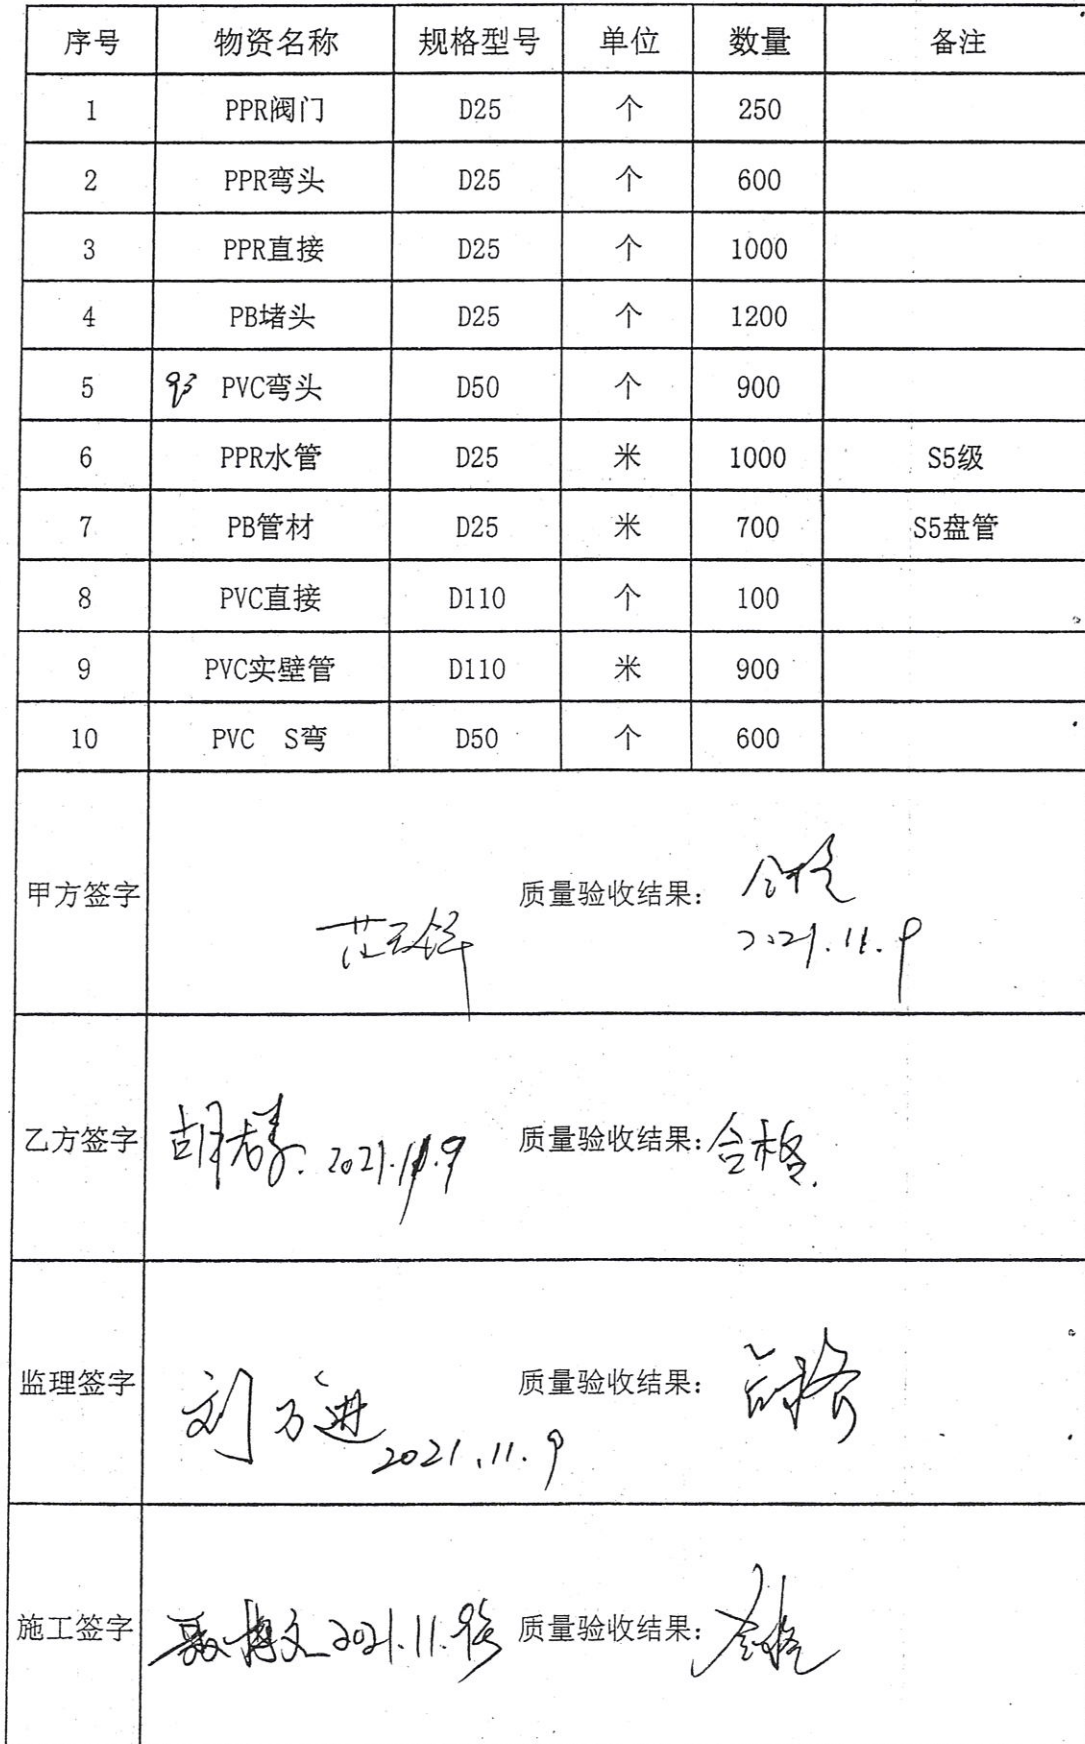 序号 物资名称 规格型号 单位 数量 备注
1 PPR阀门 D25 个 250
2 PPR弯头 D25 个 600
3 PPR直接 D25 个 1000
4 PB堵头 D25 个 1200
5 PVC弯头 D50 个 900
6 PPR水管 D25 米 1000 S5级
7 PB管材 D25 米 700 S5盘管
8 PVC直接 D110 个 100
9 PVC实壁管 D110 米 900
10 PVC S弯 D50 个 600
甲方签字 质量验收结果: 合格
2021.11.9
乙方签字 2021.11.9 质量验收结果: 合格.
监理签字 刘万进 质量验收结果: 合格
2021.11.9
施工签字 聂博文 2021.11.9 质量验收结果: 合格